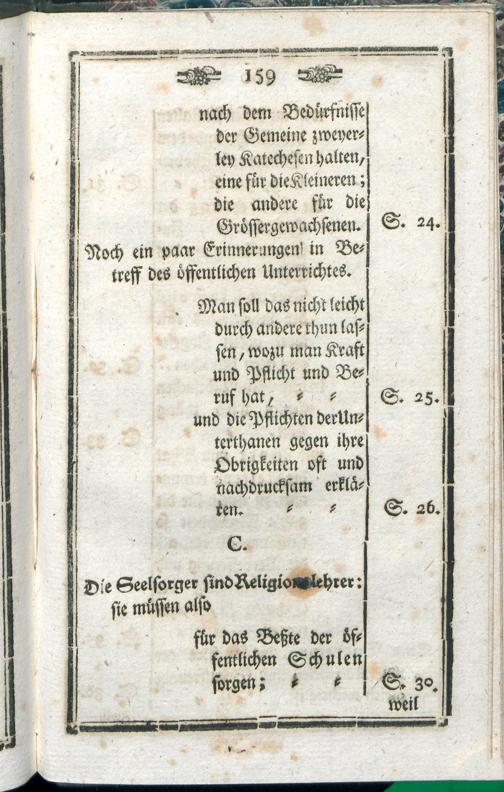 159
nach dem Bedürfnisse
der Gemeine zweyer-
ley Katechesen halten,
eine für die Kleineren;
die andere für die
Grössergewachsenen. S. 24.
Noch ein paar Erinnerungen in Be-
treff des öffentlichen Unterrichtes.
Man soll das nicht leicht
durch andere thun las-
sen, wozu man Kraft
und Pflicht und Be-
ruf hat, = = S. 25.
und die Pflichten der Un-
terthanen gegen ihre
Obrigkeiten oft und
nachdrucksam erklä-
ren. = = S. 26.
C.
Die Seelsorger sind Religionslehrer:
sie müssen also
für das Beßte der öf-
fentlichen Schulen
sorgen; = = S. 30.
weil